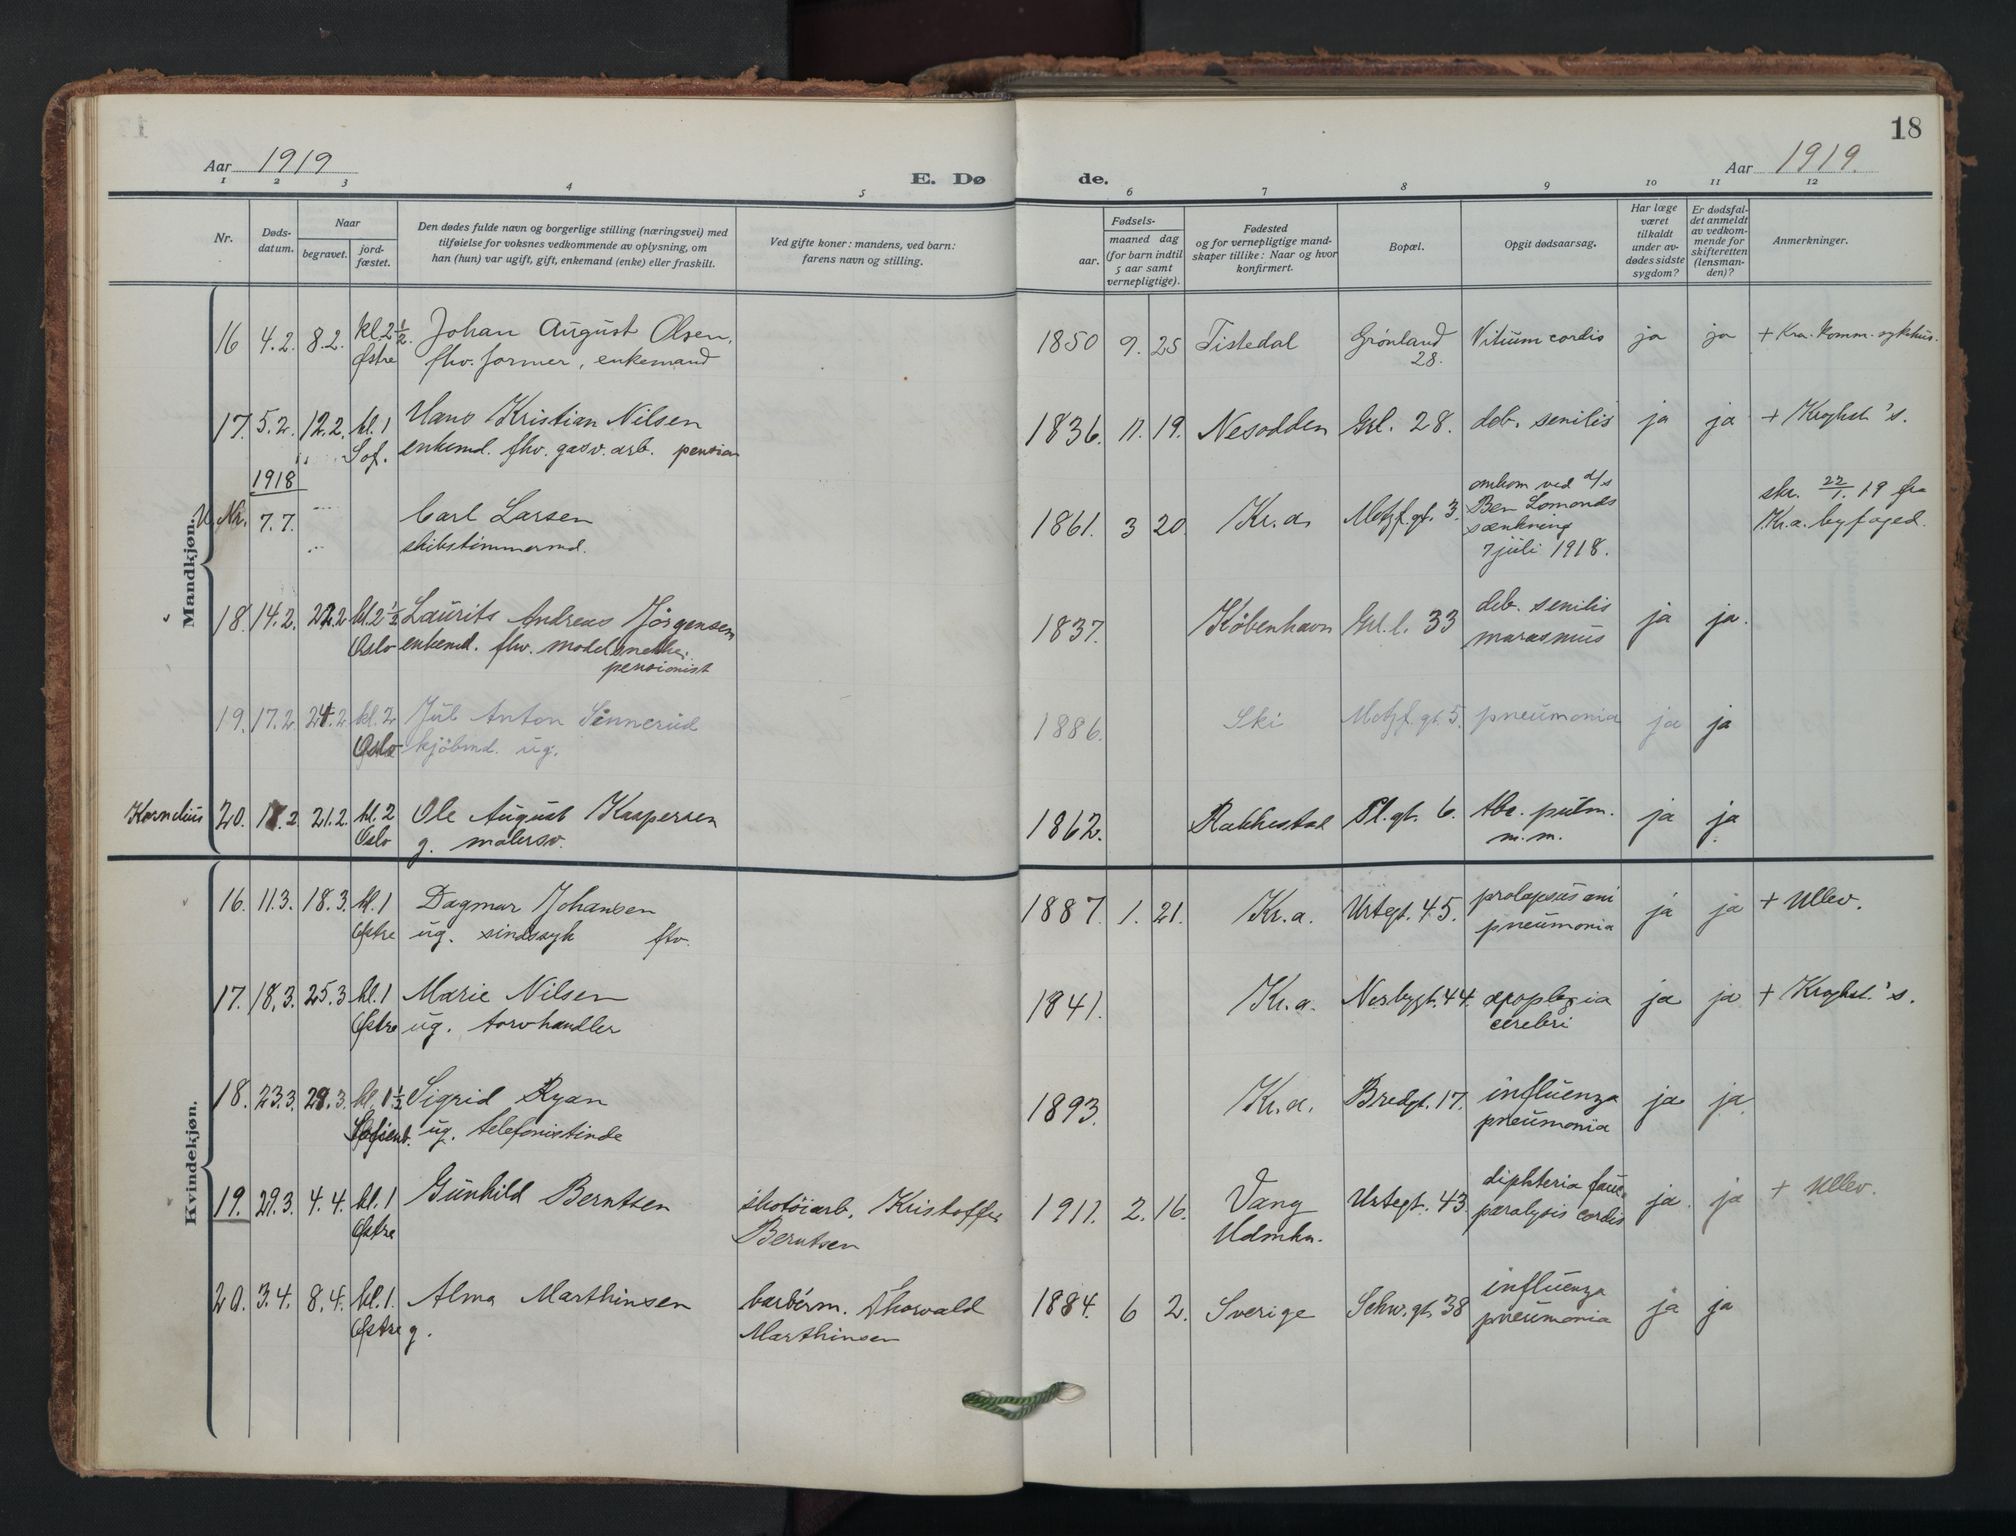 18
Aar 1919
E. Dø de.
Aar 1919.
1 2 3 4 5 6 7 8 9 10 11 12
Nr.
Døds-
datum.
Naar
begravet.
jord-
fæstet.
Den dødes fulde navn og borgerlige stilling (næringsvei) med
tilføielse for voksnes vedkommende av oplysning, om
han (hun) var ugift, gift, enkemand (enke) eller fraskilt.
Ved gifte koner: mandens, ved barn:
farens navn og stilling.
Fødsels-
aar.
maaned dag
(for barn indtil
5 aar samt
vernepligtige).
Fødested
og for vernepligtige mand-
skaper tillike: Naar og hvor
konfirmert.
Bopæl.
Opgit dødsaarsag.
Har læge
været
tilkaldt
under av-
dødes sidste
sygdom?
Er dødsfal-
det anmeldt
av vedkom-
mende for
skifteretten
(lensman-
den)?
Anmerkninger.
Mandkjøn.
16 4.2. 8.2. kl. 2 1/2 Johan August Olsen, 1850 9. 25 Tistedal Grønland Vitium cordis ja ja + Kra. Komm. sykehus.
Østre fhv. former, enkemand 28.
17. 5.2. 12.2. kl. 1 Hans Kristian Nilsen 1836. 11. 19. Nesodden Grl. 28. deb. senilis ja ja + Kroghst.'s.
Sof. enkemd. fhv. gasv. arb. pension
1918
U. Nr. 7.7. Carl Larsen 1861. 3 20. Kr.a Motzf. gt. 3. omkom ved d/s skr. 22/1. 19 fra
skibstimmermd. Ben Lomonds Kr.a. byfoged.
sænkning
7 juli 1918.
18. 14.2. 22.2 kl. 2 1/2 Laurits Andreas Jørgensen 1837. København Grl. l. 33 deb. senilis ja ja.
Oslo enkemd. fhv. modelsnekker marasmus
pensionist
19. 17.2. 24.2 kl. 2 Jul Anton Sinnerud 1886. Ski Motzf. gt. 5. pneumonia ja ja
Oslo kjøbmd. ug.
Kornelius 20. 18.2 21.2. kl. 2 Ole August Kaspersen 1862. Rakkestad Pl. gt. 6. tbc. pulm. ja ja
Oslo g. malersv. m.m.
Kvindekjøn.
16. 11.3. 18.3. kl. 1 Dagmar Johansen 1887. 1. 21. Kr.a. Urtegt. 45. prolapsus ani ja ja + Ullev.
Østre ug. sindssyk fhv. pneumonia
17. 18.3. 25.3 kl. 1 Marie Nilsen 1841. Kr.a. Norbygt. 44. apoplexia ja ja + Kroghst.'s.
Østre ug. torvhandler cerebri
18. 23.3. 29.3. kl. 1 1/2 Sigrid Ryan 1893. Kr.a. Bredgt. 17. influenza ja ja
Sofienb. ug. telefonistinde pneumonia
19. 29.3. 4.4. kl. 1 Gunhild Berntsen skotøiarb. Kristoffer 1911. 2. 16. Vang Urtegt. 43. diphteria fauc. ja ja + Ullev.
Østre Berntsen Hdmkn. paralysis cordis
20. 3.4. 8.4. kl. 1. Alma Marthinsen barberm. Thorvald 1884. 6 2. Sverige Schw. gt. 38 influenza ja ja
Østre g. Marthinsen pneumonia